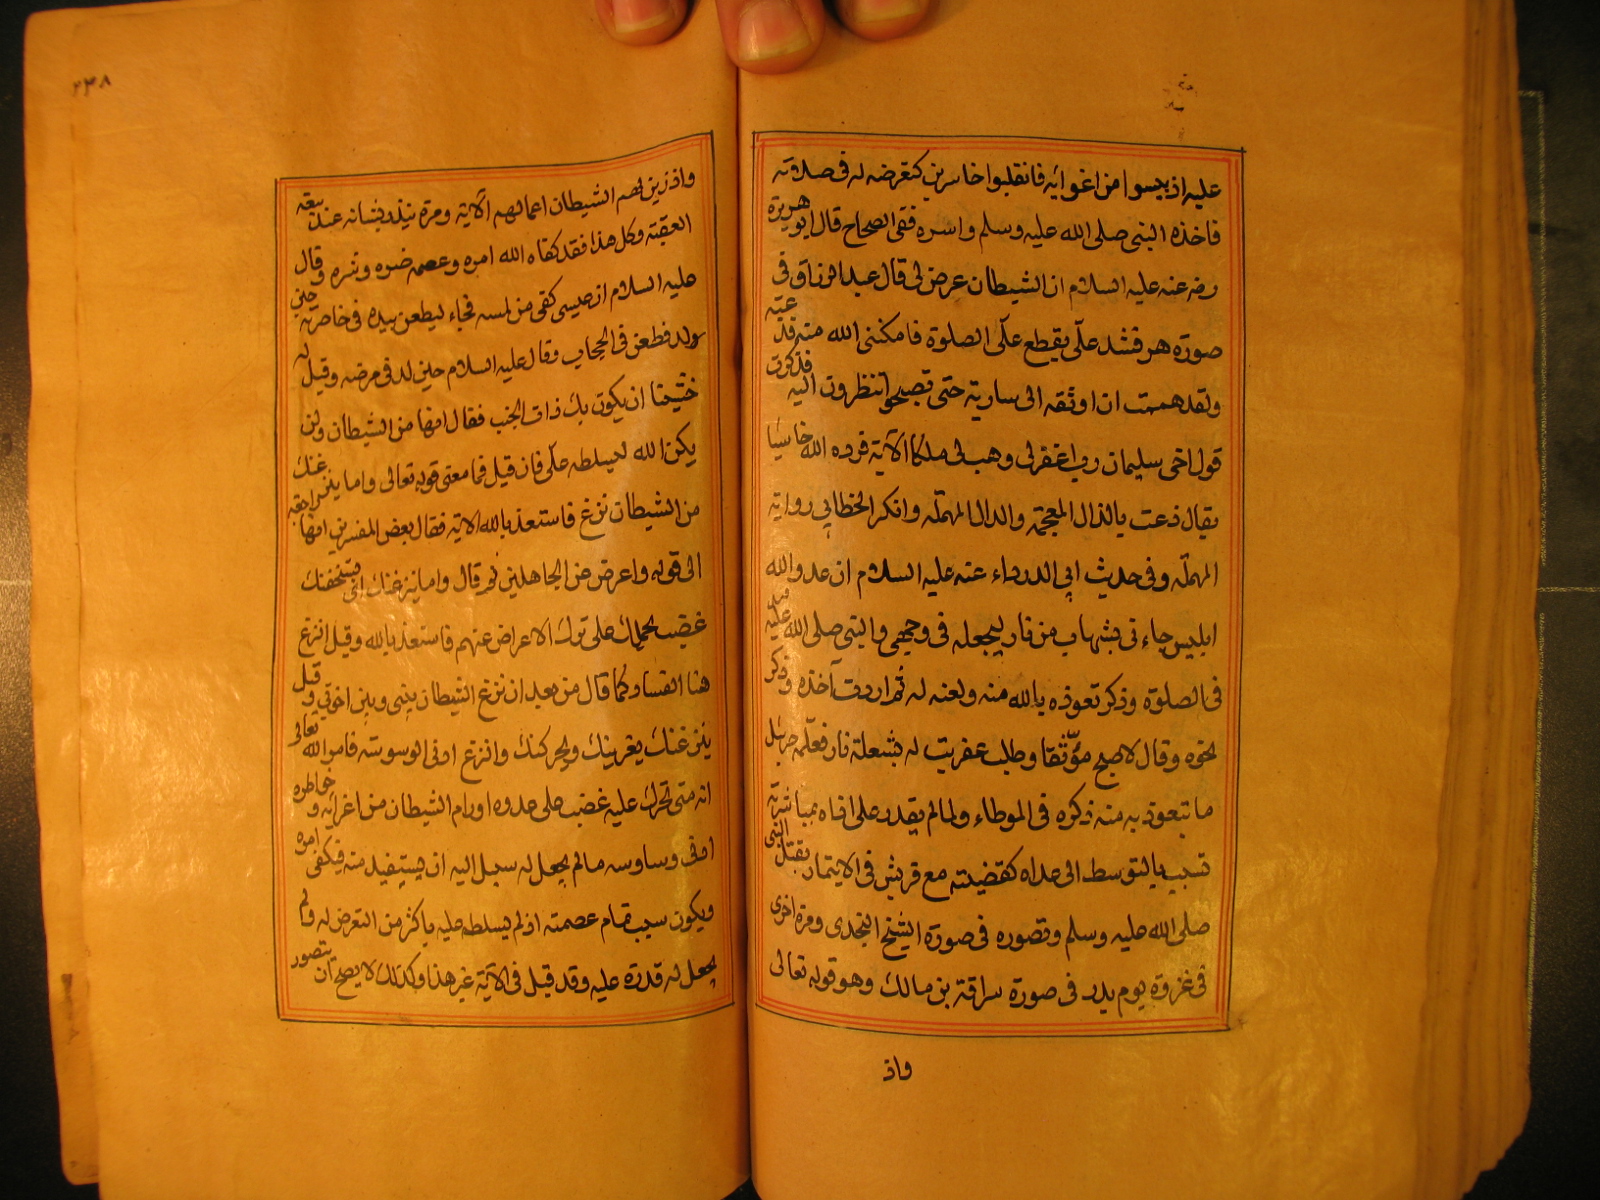 عليه اذ يبسوا من اغوائه فانقلبوا خاسرين كتعرضه له فى صلاته
فاخذه النبى صلى الله عليه وسلم واسره ففى الصحاح قال ابو هريرة
رضه عنه عليه السلام ان الشيطان عرض لى قال عبد الرزاق فى
صورة هر فشد علّى يقطع علّى الصلوة فامكننى الله منه فذعته
ولقد هممت ان اوثقه الى سارية حتى تصبحوا تنظرون اليه فذكرت
قول اخى سليمان رب اغفرلى وهب لى ملكا الآية فرده الله خاسيا
يقال ذعت بالذال المعجمة والدال المهملة وانكر الخطابي رواية
المهملة وفى حديث ابي الدرداء عنه عليه السلام ان عدو الله
ابليس جاءنى بشهاب من نار ليجعله فى وجهى والنبى صلى الله عليه
فى الصلوة وذكر تعوذه بالله منه ولعنه له ثم اردت آخذه وذكر
نحوه وقال لاصبح موّثقا وطلب عفريت له بشعلة نار فعلّمه جبريل
ما تبعوذ به منه ذكره فى الموطاء ولما لم يقدر على اذاه بمباشرته
تسبب بالتوسط الى عداه كقضيته مع قريش فى الايتمار بقتل النبى
صلى الله عليه وسلم وتصوره فى صورة الشيخ النجدى ومرة اخرى
فى غزوة يوم بدر فى صورة سراقة بن مالك وهو قوله تعالى
واذ
٢٣٨
واذ زين لهم الشيطان اعمالهم الآية ومرة ينذر بشانه عند بيعة
العقبة وكل هذا فقد كفاه الله امره وعصمه ضره وشره وقال
عليه السلام ان عيسى كفى من لمسه فجاء ليطعن بيده فى خاصرته حين
ولد فطعن فى الحجاب وقال عليه السلام حين لد فى مرضه وقيل له
خشينا ان يكون بك ذات الجنب فقال انها من الشيطان ولن
يكن الله ليسلطه علّى فان قيل فما معنى قوله تعالى واما ينزغنك
من الشيطان نزغ فاستعذ بالله الاية فقال بعض المفسرين انها راجعة
الى قوله واعرض عن الجاهلين ثم قال واما ينزغنك اى يستخفنك
غضب يحملك على ترك الاعراض عنهم فاستعذ بالله وقيل النزغ
هنا الفساد كما قال من بعد ان نزغ الشيطان بينى وبين اخوتي وقيل
ينزغنك يغرينك ويحركنك والنزغ ادنى الوسوسة فامره الله تعالى
انه متى تحرك عليه غضب على عدوه اورام الشيطان من اغرائه و خواطره
ادنى وساوسه مالم يجعل له سبيل اليه ان يستعيذ منه فيكفى امره
ويكون سبب تمام عصمته اذ لم يسلطه عليه باكثر من التعرض له ولم
يجعل له قدرة عليه وقد قيل فى الآية غير هذا وكذلك لا يصح ان يتصور